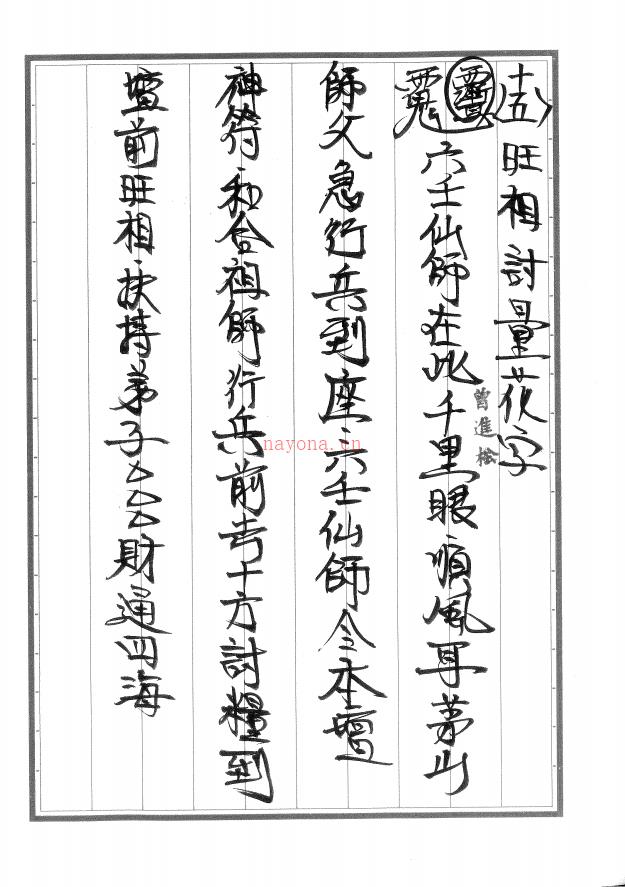 十八
十五
旺相討量花字
六壬仙師在此千里眼順風耳茅山
師父急行兵到座六壬仙師令本壇
神符和合祖師行兵前去十方討糧到
壇前旺相扶持弟子厶厶財通四海
曾進松
nayona.cn